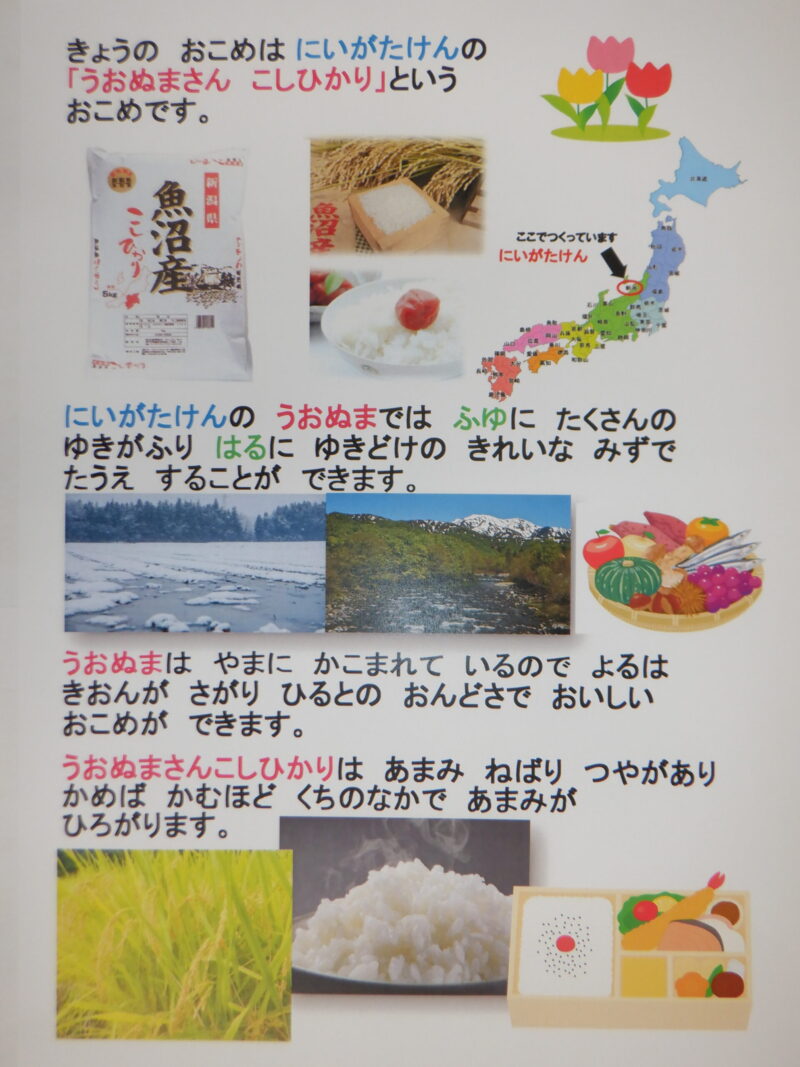 きょうの おこめは にいがたけんの
「うおぬまさん こしひかり」という
おこめです。
新潟県
魚沼産
こしひかり
5kg
魚沼産
北海道
ここでつくっています
にいがたけん
にいがたけんの うおぬまでは ふゆに たくさんの
ゆきがふり はるに ゆきどけの きれいな みずで
たうえ することが できます。
うおぬまは やまに かこまれて いるので よるは
きおんが さがり ひるとの おんどさで おいしい
おこめが できます。
うおぬまさんこしひかりは あまみ ねばり つやがあり
かめば かむほど くちのなかで あまみが
ひろがります。